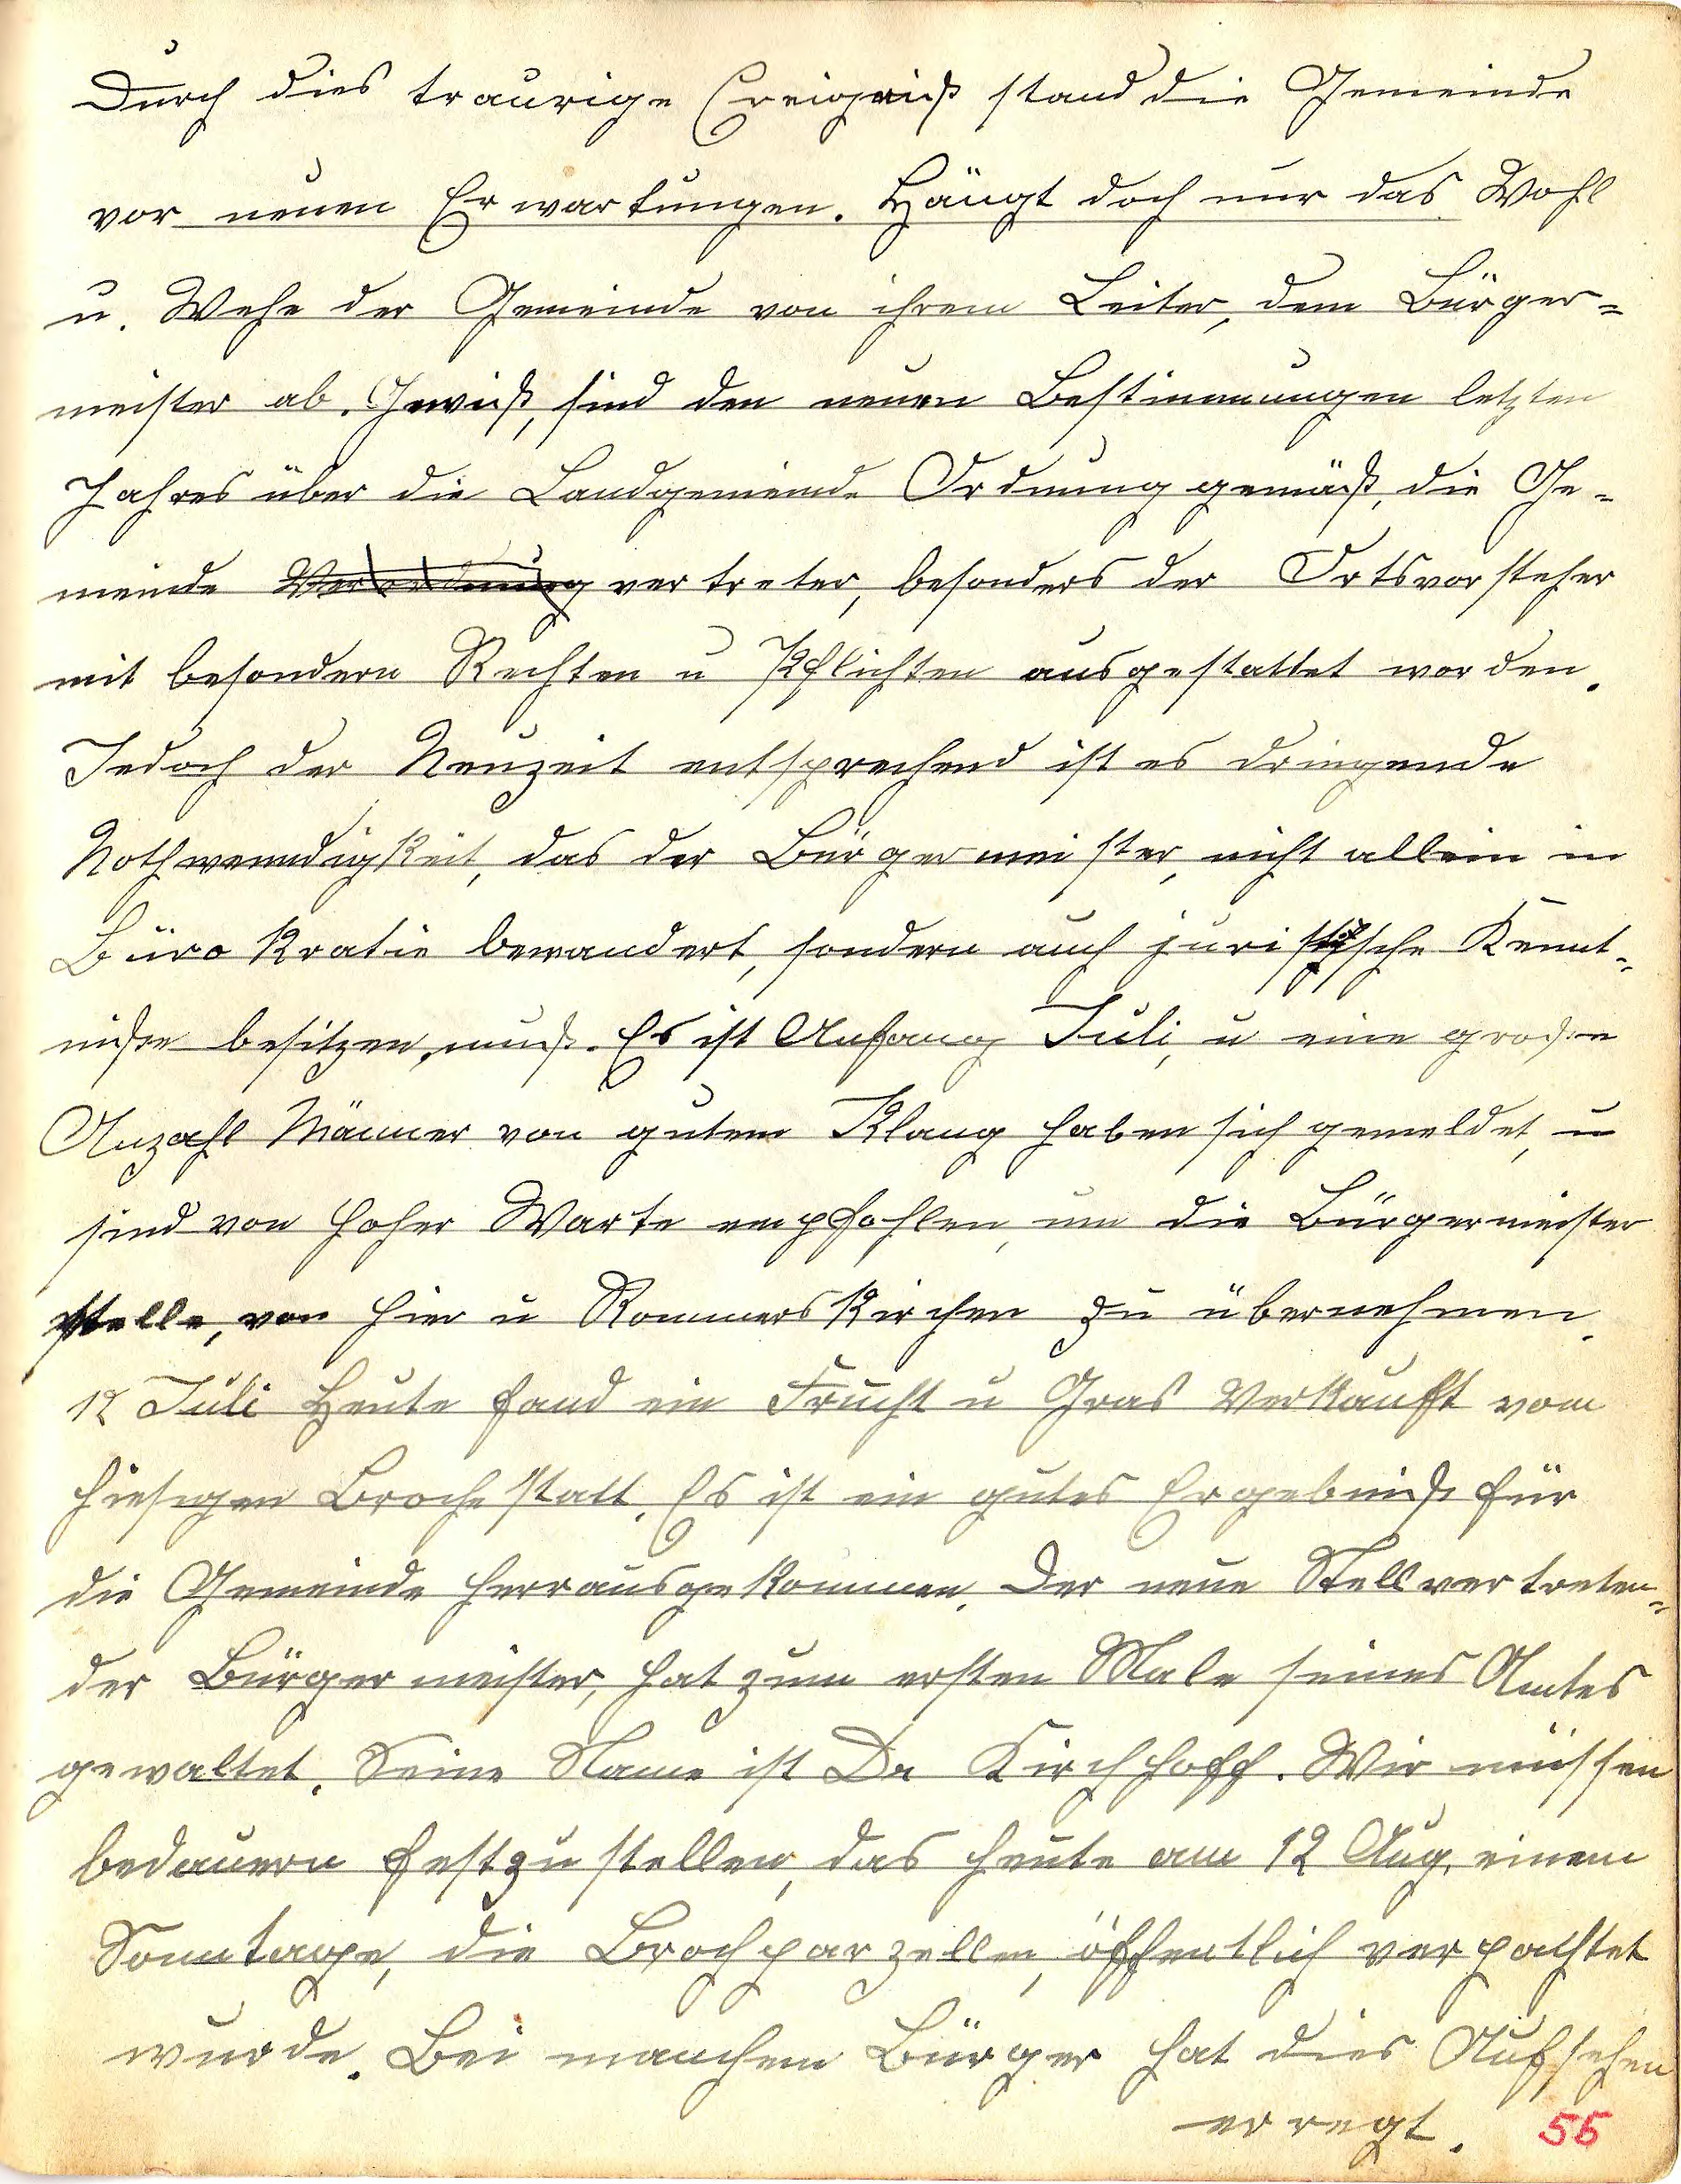 Durch dies traurige Ereigniß stand die Gemeinde
vor neuen Erwartungen. Hängt doch nur das Wohl
u. Wehe der Gemeinde von ihrem Leiter, dem Bürger=
meister ab. Gewiß, sind den neuen Bestimmungen letzten
Jahres über die Landgemeinde Ordnung gemäß, die Ge=
meinde Verordnung vertreter, besonders der Ortsvorsteher
mit besondern Rechten u Pflichten ausgestattet worden.
Jedoch der Neuzeit entsprechend ist es dringende
Nothwenndigkeit, das der Bürgermeister, nicht allein in
Bürokratie bewandert, sondern auch juristische Kennt=
niße besitzen, muß. Es ist Anfang Juli, u eine große
Anzahl Männer von gutem Klang haben sich gemeldet, u
sind von hoher Warte empfohlen, um die Bürgermeister
stelle, von hier u Rommerskirchen zu übernehmen.
12 Juli Heute fand ein Frucht u Gras Verkauft vom
hiesigen Broche statt. Es ist ein gutes Ergebniß für
die Gemeinde herrausgekommen. Der neue Stellvertreten=
der Bürgermeister, hat zum ersten Male seines Amtes
gewaltet. Seine Name ist Dr Kirchhoff. Wir müssen
bedauern festzustellen, das heute am 12 Aug. einem
Sonntage, die Brochparzellen, öffentlich verpachtet
wurde. Bei manchem Bürger hat dies Aufsehen
erregt. 55